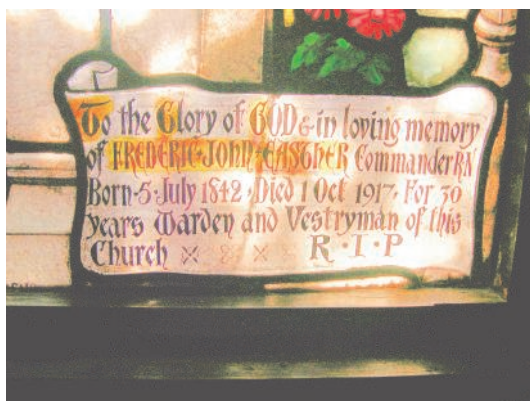 To the Glory of GOD & in loving memory
of FREDERIC · JOHN · EASTHER Commander RN
Born · 5 · July 1842 · Died 1 Oct 1917 · For 30
years Warden and Vestryman of this
Church R · I · P